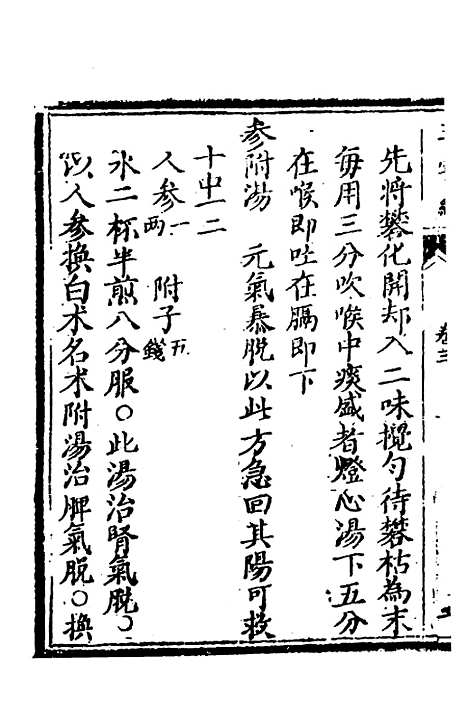 先將礬化開却入二味攪勻待礬枯為末
每用三分吹喉中痰盛者燈心湯下五分
在喉即吐在膈即下
參附湯　元氣暴脫以此方急回其陽可救
十中一二
人參一兩　附子五錢
水二杯半煎八分服○此湯治腎氣脫○
以人參換白朮名朮附湯治脾氣脫○換
卷三